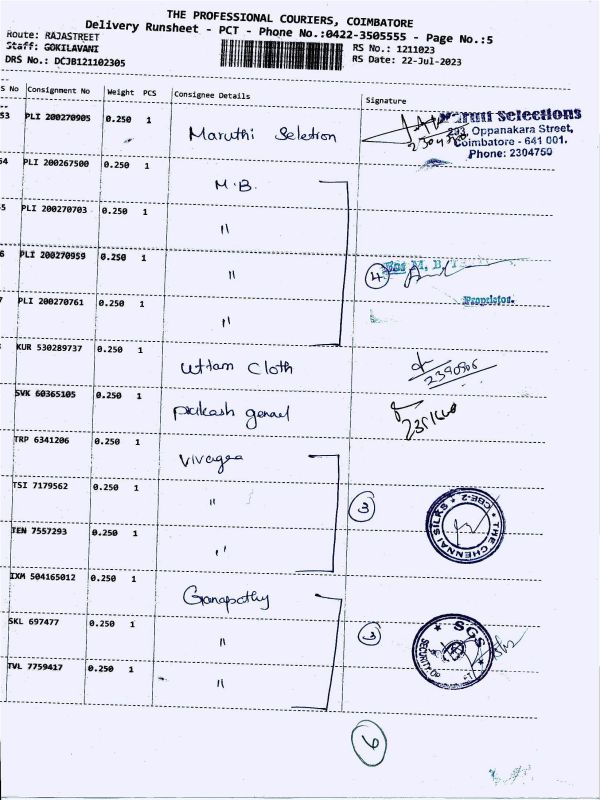 THE PROFESSIONAL COURIERS, COIMBATORE
Delivery Runsheet - PCT - Phone No.:0422-3505555 - Page No.:5
Route: RAJASTREET
Staff: GOKILAVANI RS No.: 1211023
DRS No.: DCJB121102305 RS Date: 22-Jul-2023
S No Consignment No Weight PCS Consignee Details Signature
53 PLI 200270905 0.250 1 Maruthi Seletion
Selections
Oppanakara Street,
Coimbatore - 641 001.
Phone: 2304750
54 PLI 200267500 0.250 1 M.B.
5 PLI 200270703 0.250 1 "
6 PLI 200270959 0.250 1 " 4
M. B.
Proprietor.
7 PLI 200270761 0.250 1 "
KUR 530289737 0.250 1 Uttam Cloth
2390506
SVK 60365105 0.250 1 Prakash
TRP 6341206 0.250 1
TSI 7179562 0.250 1 " 3
THE CHENNAI SILKS ★ CBE-2 ★
TEN 7557293 0.250 1 "
IXM 504165012 0.250 1 Ganapathy
SKL 697477 0.250 1 " 3
★ SGS ★
SECURITY
TVL 7759417 0.250 1 "
6